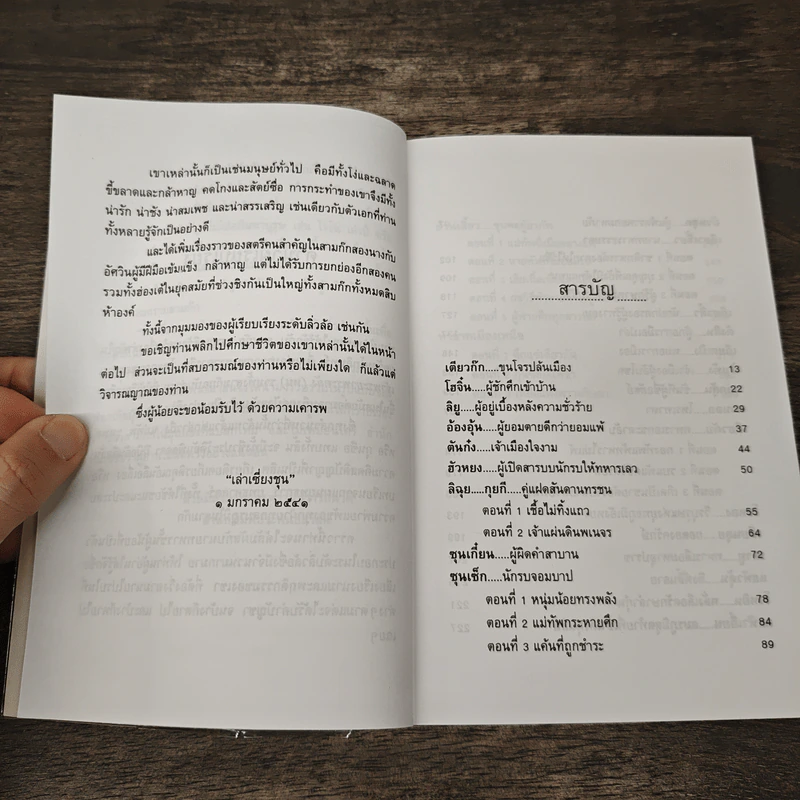 เขาเหล่านั้นก็เป็นเช่นมนุษย์ทั่วไป คือมีทั้งโง่และฉลาด
ขี้ขลาดและกล้าหาญ คดโกงและสัตย์ซื่อ การกระทำของเขาจึงมีทั้ง
น่ารัก น่าชัง น่าสมเพช และน่าสรรเสริญ เช่นเดียวกับตัวเอกที่ท่าน
ทั้งหลายรู้จักเป็นอย่างดี
และได้เพิ่มเรื่องราวของสตรีคนสำคัญในสามก๊กสองนางกับ
อัศวินผู้มีฝีมือเข้มแข็ง กล้าหาญ แต่ไม่ได้รับการยกย่องอีกสองคน
รวมทั้งฮ่องเต้ในยุคสมัยที่ช่วงชิงกันเป็นใหญ่ทั้งสามก๊กทั้งหมดสิบ
ห้าองค์
ทั้งนี้จากมุมมองของผู้เรียบเรียงระดับลิ่วล้อ เช่นกัน
ขอเชิญท่านพลิกไปศึกษาชีวิตของเขาเหล่านั้นได้ในหน้า
ต่อไป ส่วนจะเป็นที่สบอารมณ์ของท่านหรือไม่เพียงใด ก็แล้วแต่
วิจารณญาณของท่าน
ซึ่งผู้น้อยจะขอน้อมรับไว้ ด้วยความเคารพ
“เล่าเซี่ยงชุน”
๑ มกราคม ๒๕๔๑
สารบัญ
เตียวก๊ก.....ขุนโจรปล้นเมือง 13
โฮจิ๋น.....ผู้ชักศึกเข้าบ้าน 22
ลิยู.....ผู้อยู่เบื้องหลังความชั่วร้าย 29
อ้องอุ้น.....ผู้ยอมตายดีกว่ายอมแพ้ 37
ตันก๋ง.....เจ้าเมืองใจงาม 44
ฮัวหยง.....ผู้เปิดสารบบนักรบให้ทหารเลว 50
ลิฉุย.....กุยกี.....คู่แฝดสันดานทรชน
ตอนที่ 1 เชื้อไม่ทิ้งแถว 55
ตอนที่ 2 เจ้าแผ่นดินพเนจร 64
ซุนเกี๋ยน.....ผู้ผิดคำสาบาน 72
ซุนเซ็ก.....นักรบจอมบาป
ตอนที่ 1 หนุ่มน้อยทรงพลัง 78
ตอนที่ 2 แม่ทัพกระหายศึก 84
ตอนที่ 3 แค้นที่ถูกชำระ 89